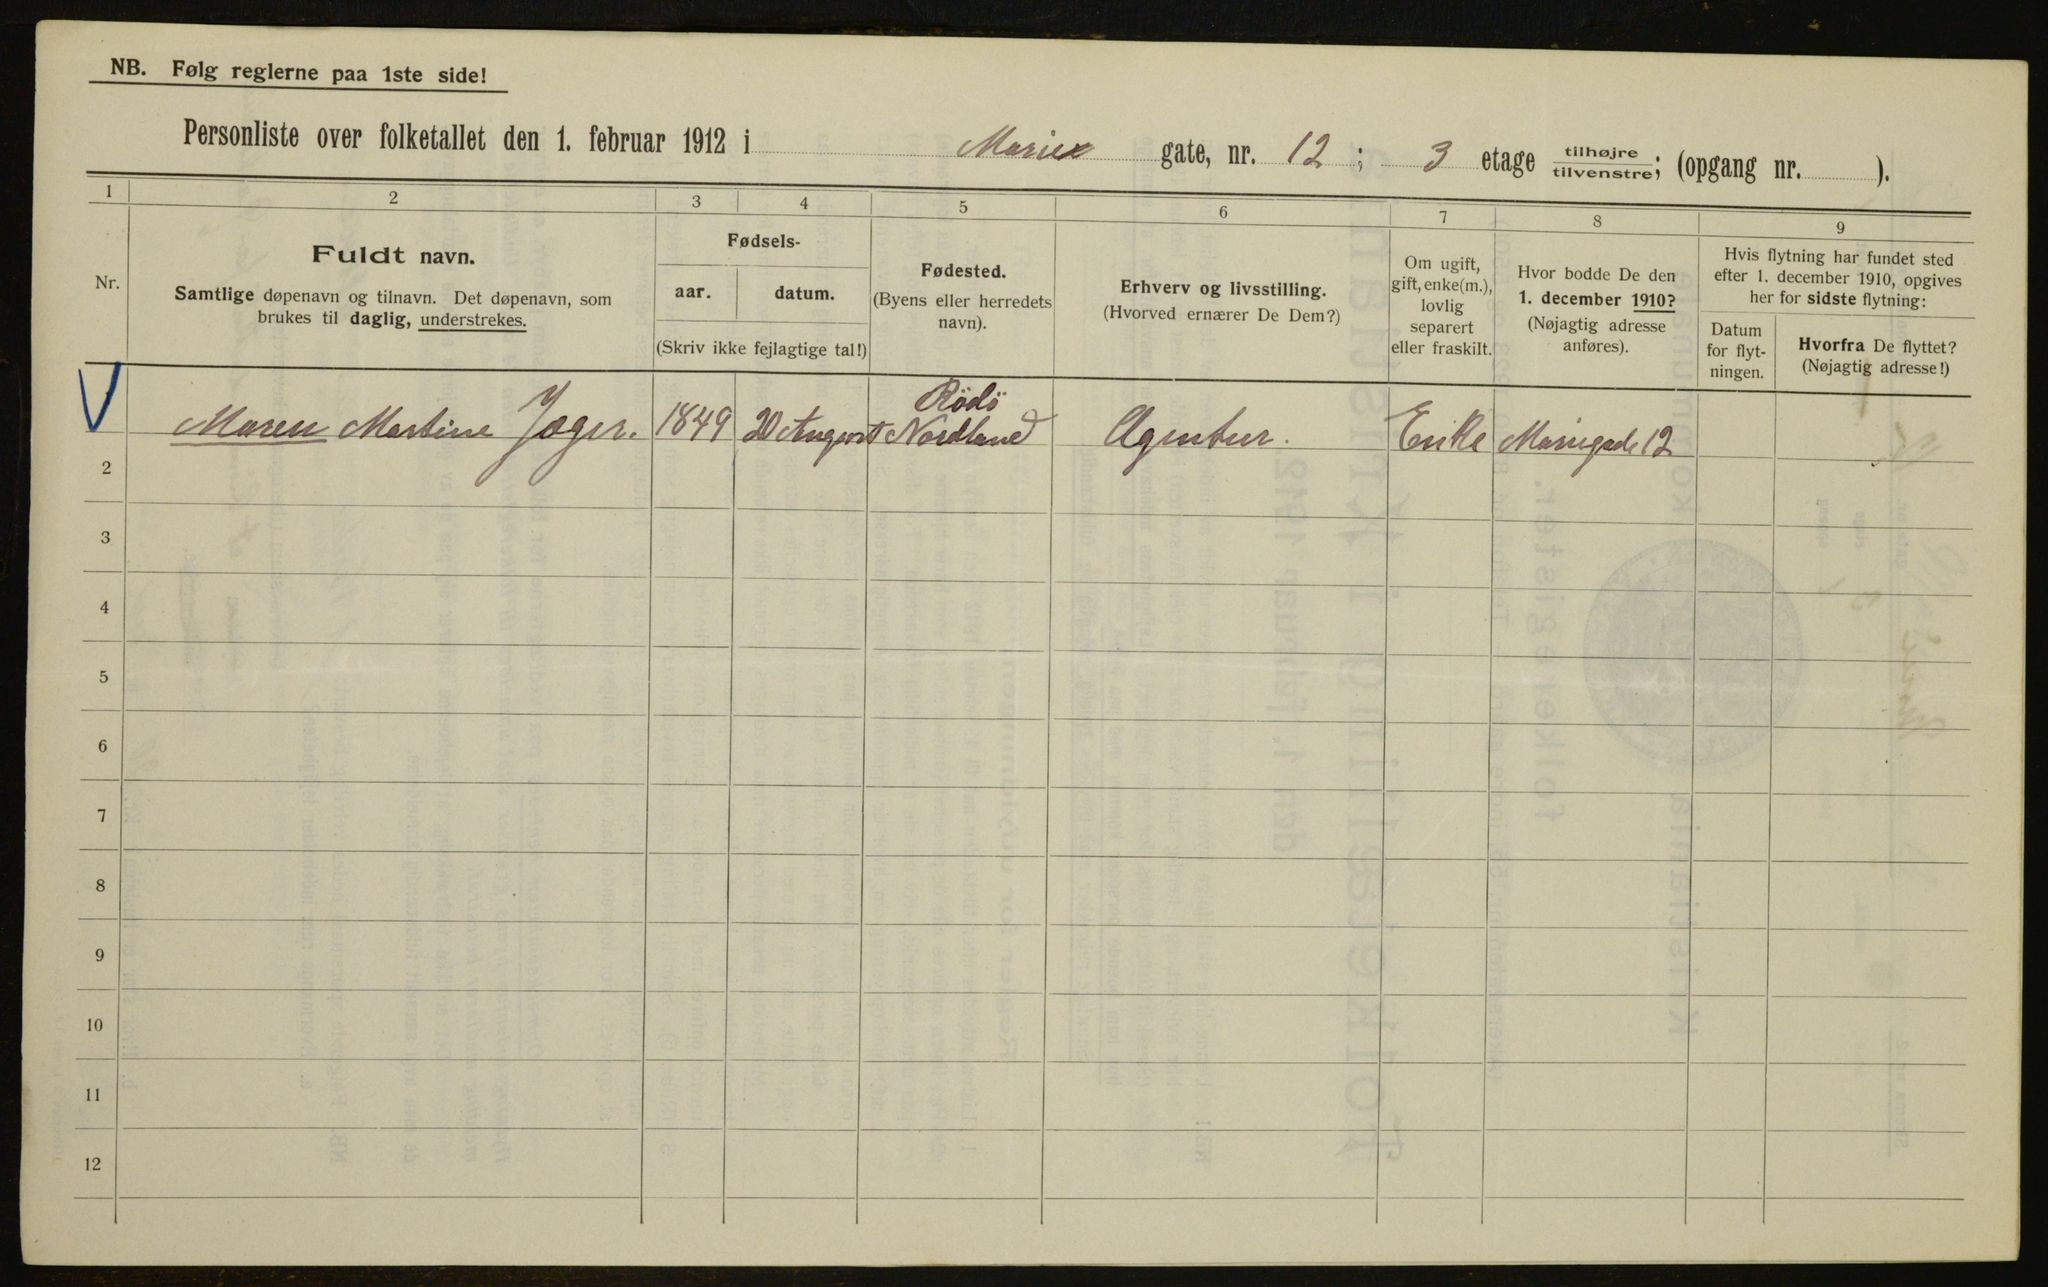 NB. Følg reglerne paa 1ste side!
Personliste over folketallet den 1. februar 1912 i Marie gate, nr. 12 ; 3 etage tilhøjre/tilvenstre; (opgang nr. ).
1 2 3 4 5 6 7 8 9
Nr.
Fuldt navn.
Samtlige døpenavn og tilnavn. Det døpenavn, som
brukes til daglig, understrekes.
Fødsels-
aar. datum.
(Skriv ikke fejlagtige tal!)
Fødested.
(Byens eller herredets
navn).
Erhverv og livsstilling.
(Hvorved ernærer De Dem?)
Om ugift,
gift, enke(m.),
lovlig
separert
eller fraskilt.
Hvor bodde De den
1. december 1910?
(Nøjagtig adresse
anføres).
Hvis flytning har fundet sted
efter 1. december 1910, opgives
her for sidste flytning:
Datum
for flyt-
ningen.
Hvorfra De flyttet?
(Nøjagtig adresse!)
Rödö
Maren Martine Jæger. 1849 20 August Nordland Agentur. Enke Mariegade 12
2
3
4
5
6
7
8
9
10
11
12